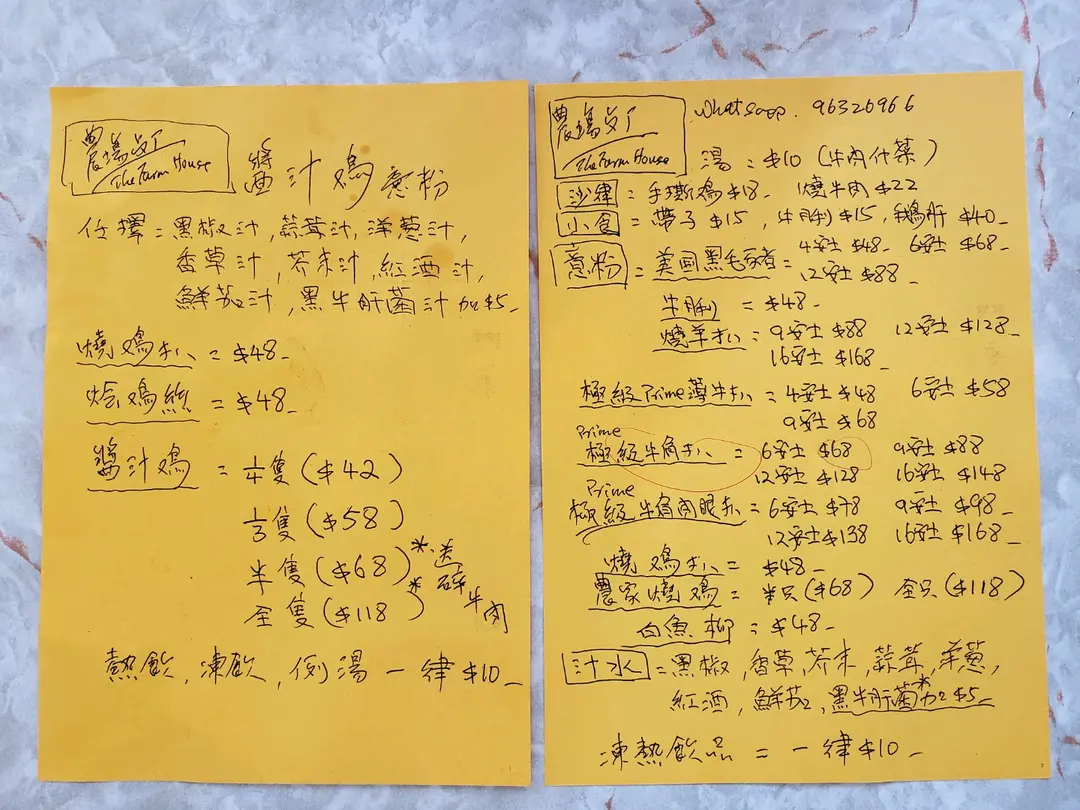 農場父丁
The Farm House
醬汁鳮意粉
任擇 = 黑椒汁, 蒜茸汁, 洋葱汁,
香草汁, 芥末汁, 紅酒汁,
鮮茄汁, 黑牛肝菌汁加$5_
燒鳮扒 = $48_
烩鳮絲 = $48_
醬汁鳮 = 1/4隻 ($42)
1/3隻 ($58)
半隻 ($68) *送碎牛肉
全隻 ($118) *
熱飲, 凍飲, 例湯一律$10_
農場父丁
The Farm House
Whatsapp. 96326966
湯 = $10 (牛肉什菜)
沙律 = 手撕鳮$18. 燒牛肉$22
小食 = 帶子$15, 牛脷$15, 鵝肝$40_
意粉 = 美國黑毛豬 = 4安士$48_ 6安士$68_
12安士$88_
牛脷 = $48_
燒羊扒 = 9安士$88 12安士$128_
16安士$168_
極級Prime薄牛扒 = 4安士$48 6安士$58
9安士$68
Prime
極級牛角扒 = 6安士$68 9安士$88
12安士$128 16安士$148
Prime
極級牛角肉眼扒 = 6安士$78 9安士$98_
12安士$138 16安士$168_
燒鳮扒 = $48_
農家燒鳮 = 半只($68) 全只($118)
白魚柳 = $48_
汁水 = 黑椒, 香草, 芥末, 蒜茸, 洋葱,
紅酒, 鮮茄, 黑牛肝菌*加$5_
凍熱飲品 = 一律$10_